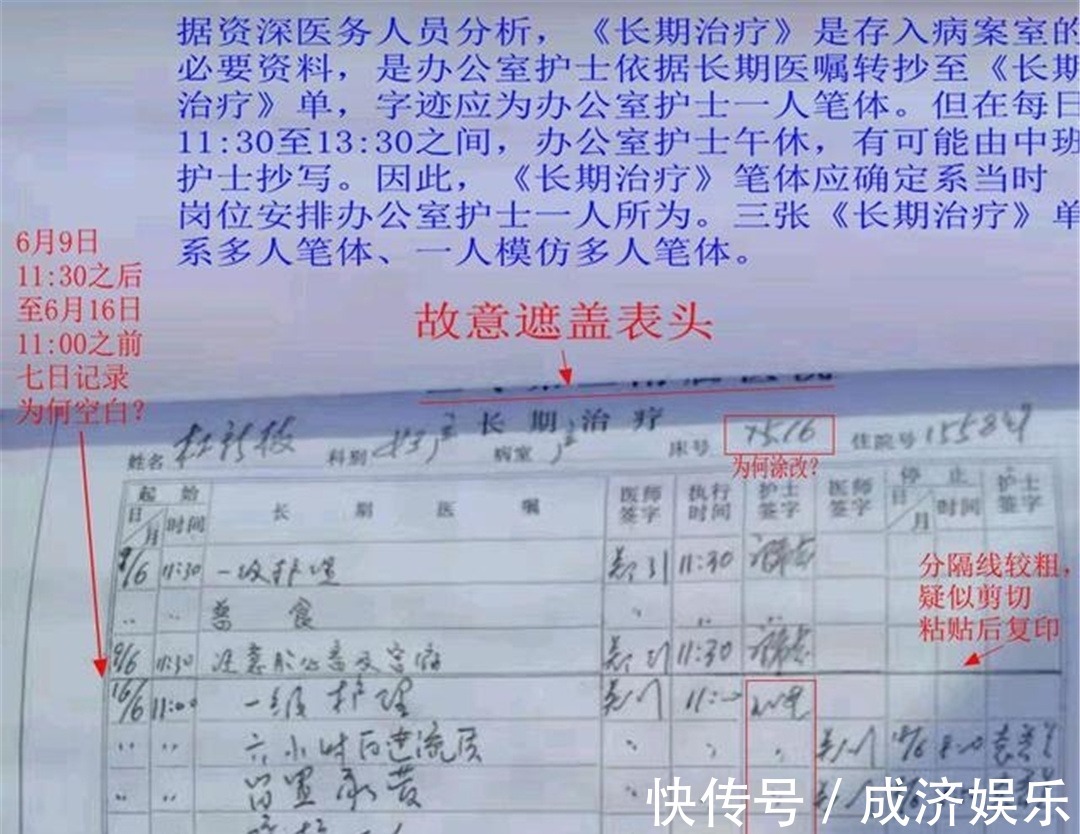 据资深医务人员分析，《长期治疗》是存入病案室的
必要资料，是办公室护士依据长期医嘱转抄至《长期
治疗》单，字迹应为办公室护士一人笔体。但在每日
11:30至13:30之间，办公室护士午休，有可能由中班
护士抄写。因此，《长期治疗》笔体应确定系当时
岗位安排办公室护士一人所为。三张《长期治疗》单
系多人笔体、一人模仿多人笔体。
6月9日
11:30之后
至6月16日
11:00之前
七日记录
为何空白？
故意遮盖表头
长期治疗
姓名 杜新枝 科别 妇产 病室 产 床号 住院号
为何涂改？
起始 长期医嘱 医师签字 执行时间 护士签字 医师签字 停止 护士签字
日/月 时间 日/月 时间
9/6 11:30 一级护理 11:30
〃 〃 普食
9/6 11:30 注意胎心音及宫缩 11:30
分隔线较粗，
疑似剪切
粘贴后复印
16/6 11:00 一级护理
〃 〃 六小时后进流质
〃 〃 留置尿管
快传号 / 成济娱乐